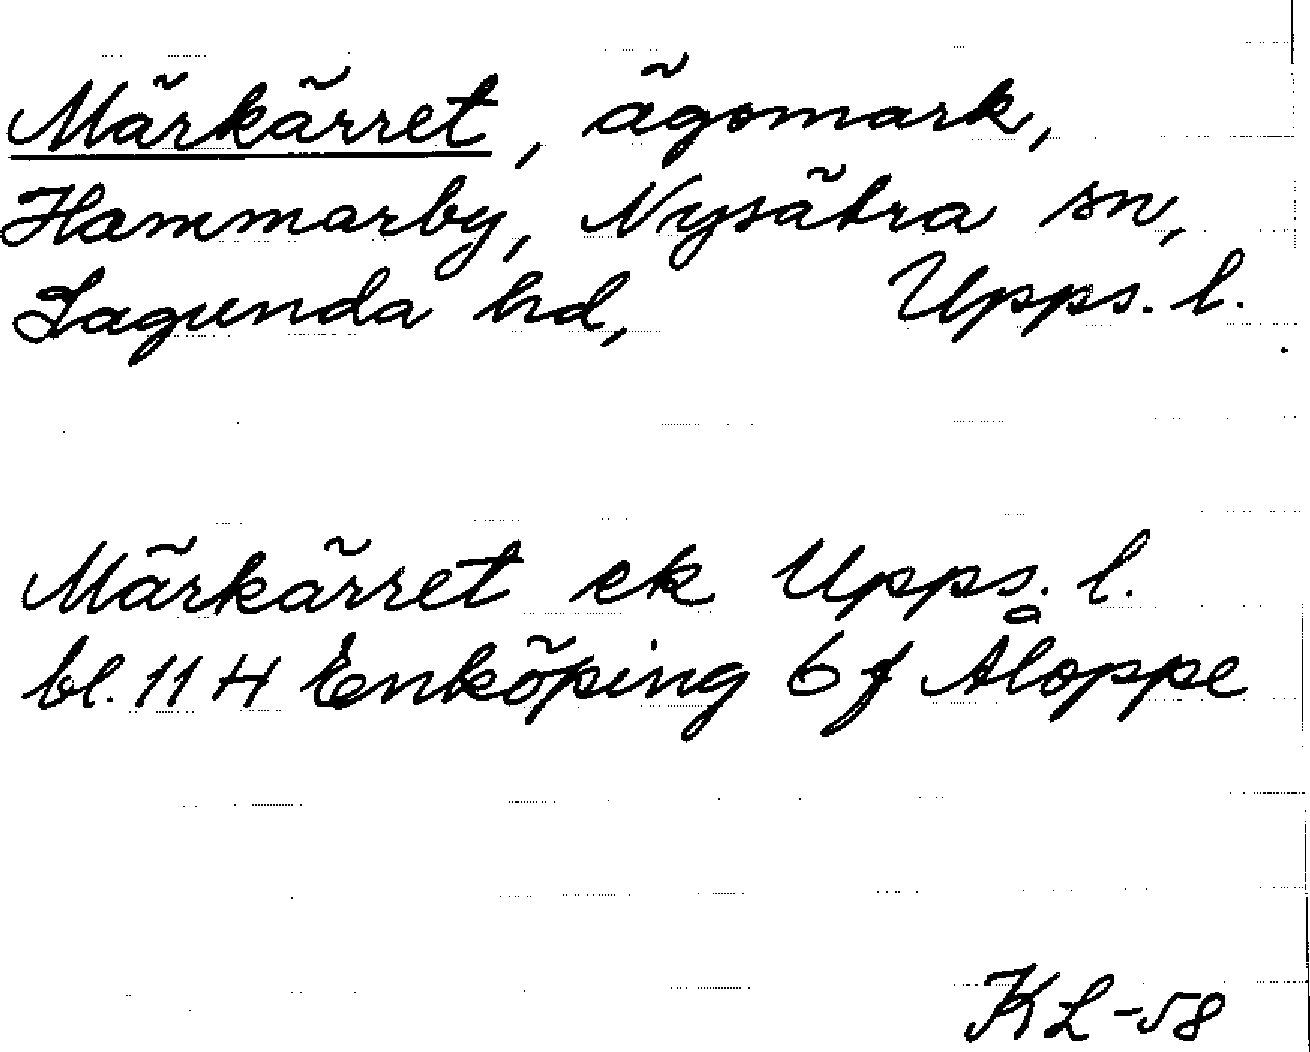 Märkärret, ägomark,
Hammarby, Nysätra sn,
Lagunda hd, Upps. l.
Märkärret ek Upps. l.
bl. 11 H Enköping 6 f Åloppe
KL-58